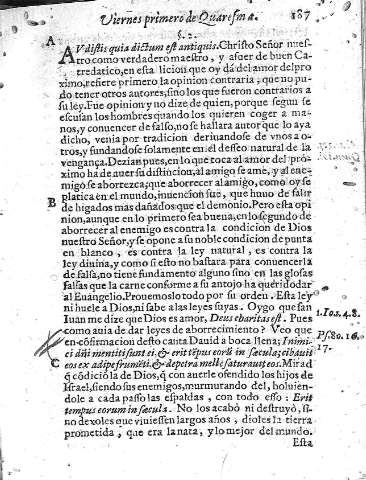 Viernes primero de Quaresma. 187
§. 2.
A
AVdistis quia dictum est antiquis. Christo Señor nues-
tro como verdadero maestro, y a fuer de buen Ca-
tredatico, en esta licion que oy dà del amor del pro
ximo, refiere primero la opinion contraria; que no pu-
do tener otros autores, sino los que fueron contrarios a
su ley. Fue opinion y no dize de quien, porque segun se
escusan los hombres quando los quieren coger a ma-
nos, y conuencer de falso, no se hallara autor que lo aya
dicho, venia por tradicion deriuandose de vnos a o-
tros, y fundandose solamente en el desseo natural de la
vengança. Dezian pues, en lo que toca al amor del pro-
ximo ha de auer su distincion, al amigo se ame, y al ene-
migo se aborrezca; que aborrecer al amigo, como oy se
platica en el mundo, inuencion fue, que huuo de salir
B
de higados mas dañados que el demonio. Pero esta opi
nion, aunque en lo primero sea buena, en lo segundo de
aborrecer al enemigo es contra la condicion de Dios
nuestro Señor, y se opone a su noble condicion de punta
en blanco, es contra la ley natural, es contra la
ley diuina, y como si esto no bastara para conuencerla
de falsa, no tiene fundamento alguno sino en las glosas
falsas que la carne conforme a su antojo ha querido dar
al Euangelio. Prouemoslo todo por su orden. Esta ley
ni huele a Dios, ni sabe a las leyes suyas. Oygo que san
Iuan me dize que Dios es amor, Deus charitas est. Pues
1. Io. 4. 8.
como auia de dar leyes de aborrecimiento? Veo que
en confirmacion desto canta Dauid a boca llena; Inimi-
Ps. 80. 16.
ci dñi mentiti sunt ei, & erit tẽpus eorũ in sæcula; cibauit
17.
C
eos ex adipe frumẽti, & de petra melle saturauit eos. Mirad
q̃ cõdiciõ la de Dios, q̃ con auerle ofendido los hijos de
Israel, siendo sus enemigos, murmurando del, boluien-
dole a cada passo las espaldas, con todo esso: Erit
tempus eorum in sæcula. No los acabó ni destruyò, si-
no dexoles que viuiessen largos años, dioles la tierra
prometida, que era la nata, y lo mejor del mundo.
Esta